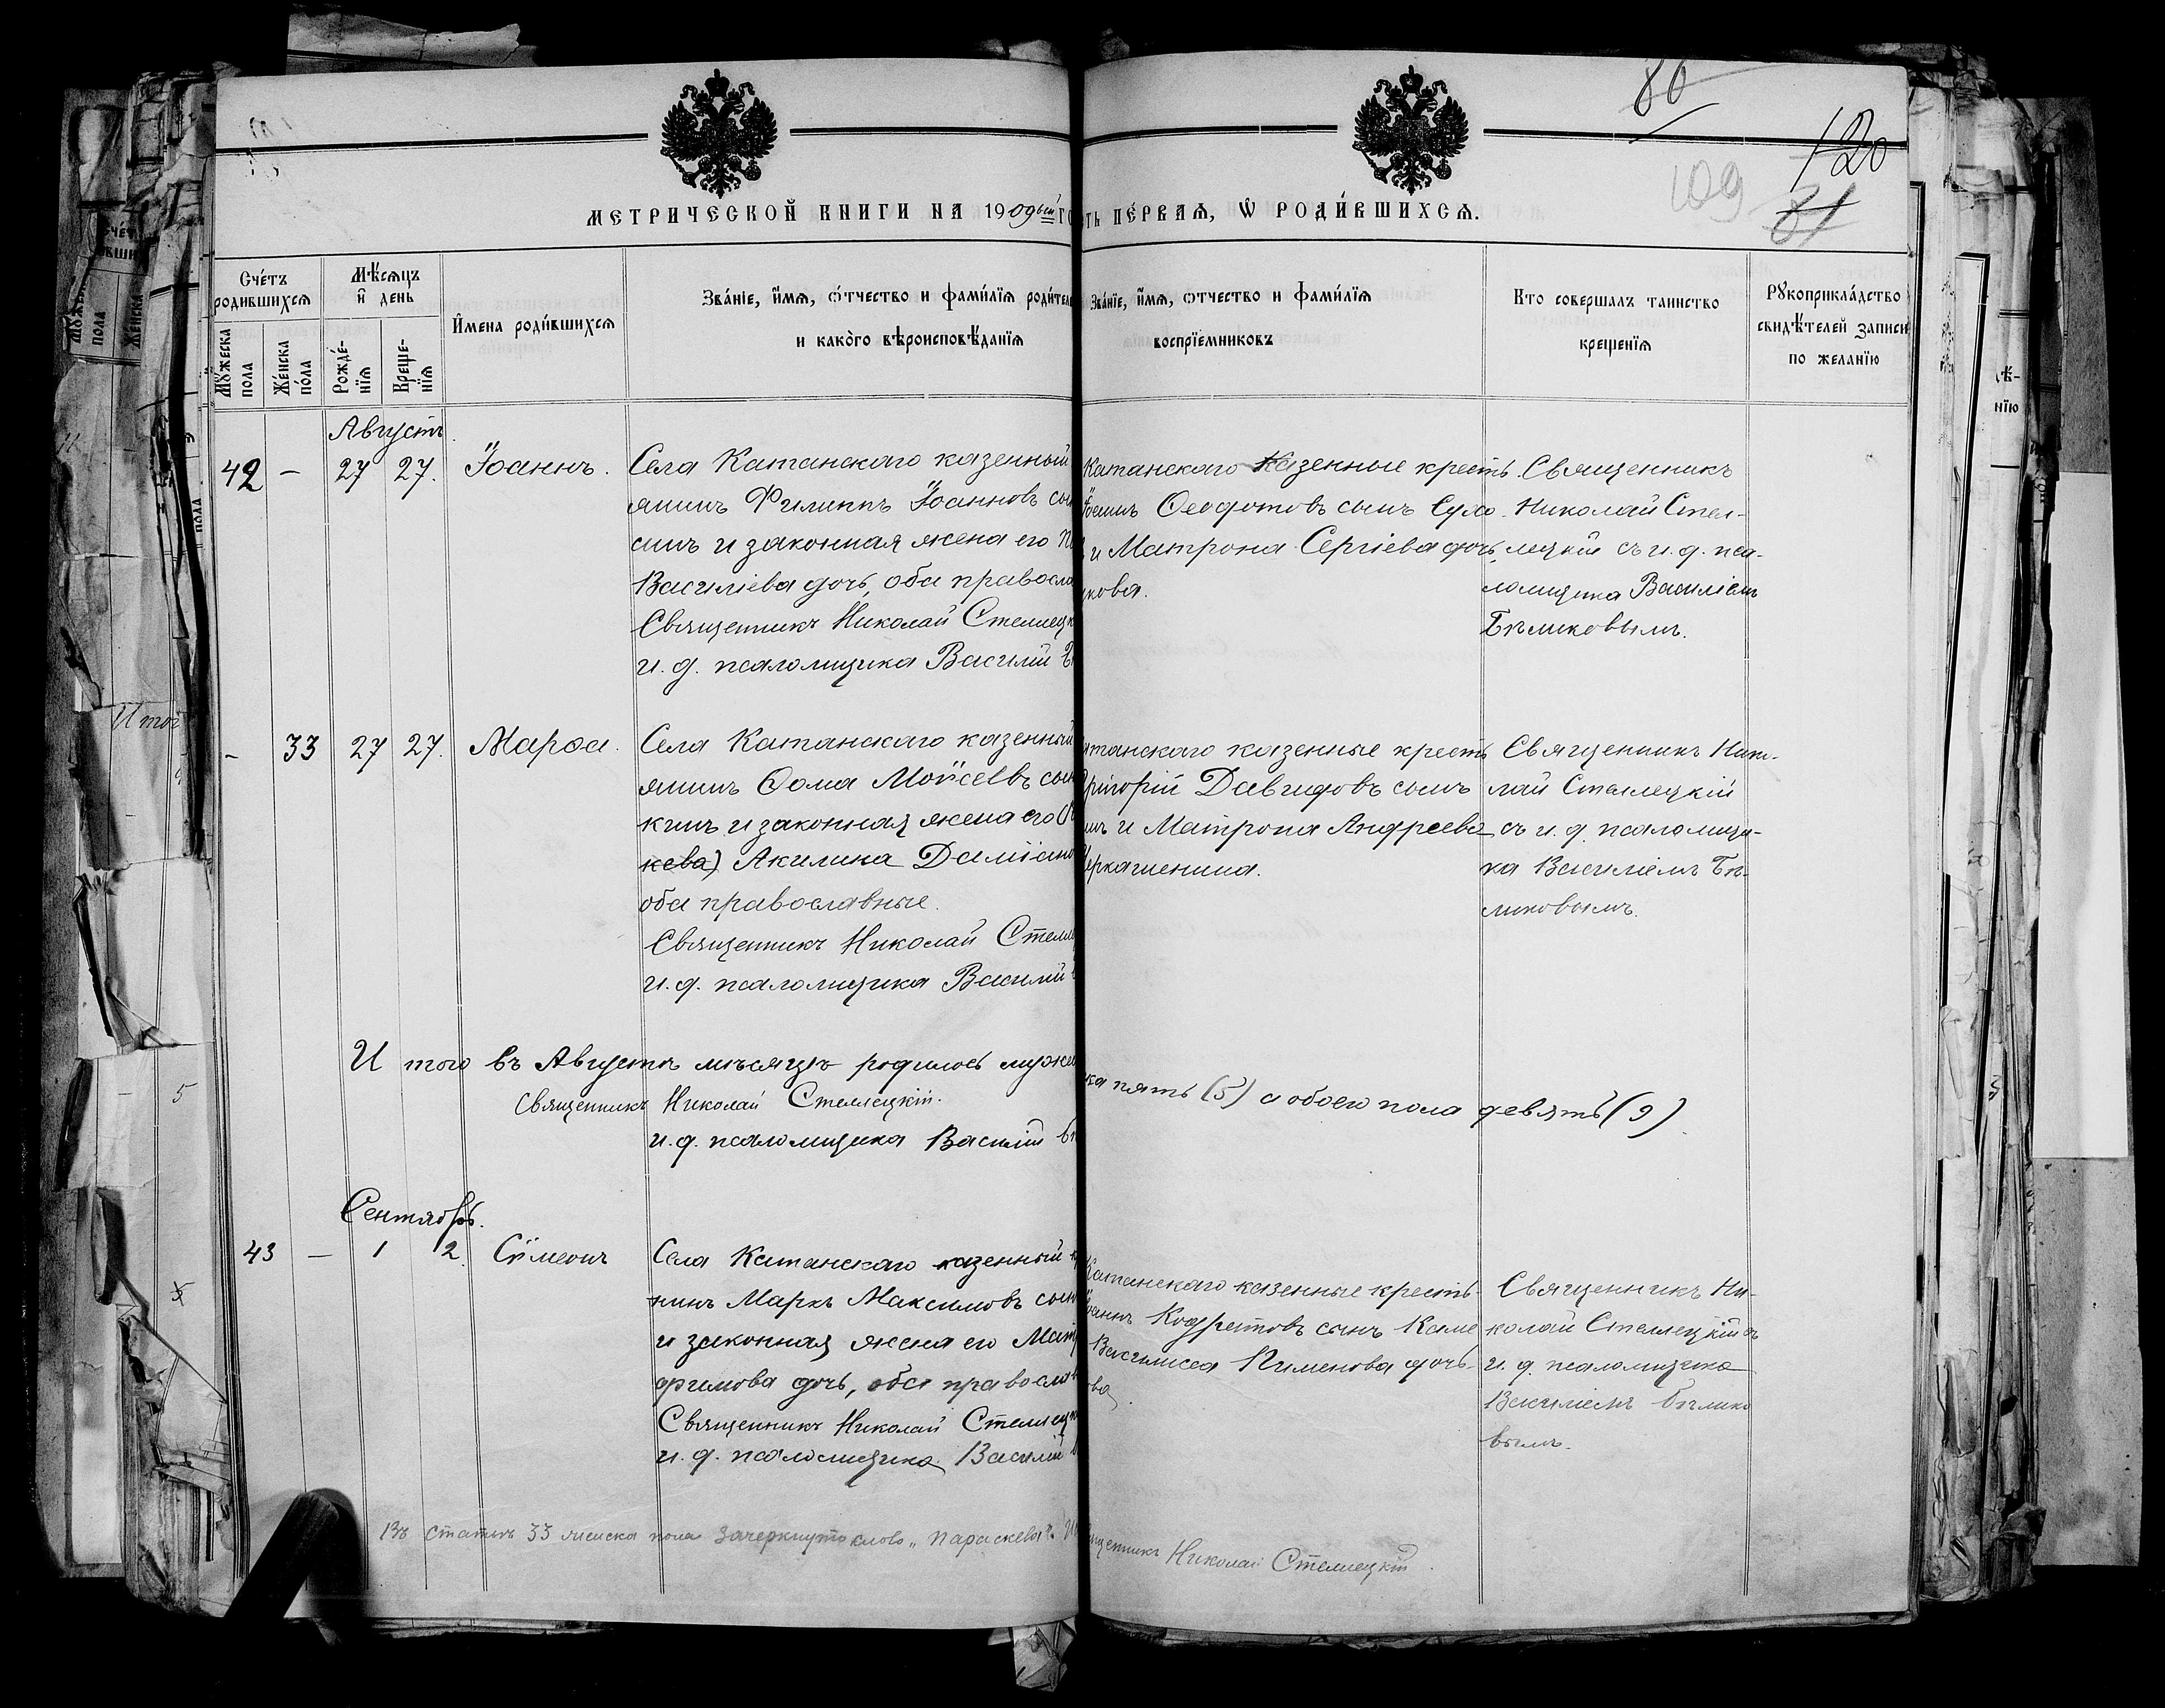 86
120
109
81
МЕТРИЧЕСКОЙ КНИГИ НА 1909ый ГО
ТЬ ПЕ́РВАЯ, Ѡ РОДИ́ВШИХСЯ.
Сче́тъ родившихся
Мѣ́сяцъ и҆ день
Му́жеска пола
Же́нска по́ла
Рожде́-нїя
Креще-нїя
И҆мена роди́вшихся
Зва́нїе, и҆́мя, ѻ҆́тчество и фами́лїя роди́тел
и како́го вѣроисповѣ́данїя
Зва́нїе, и҆́мя, ѻтчество и фами́лїя
воспрїе́мниковъ
Кто совершалъ таинство
крещенїя
Рꙋкоприкла́дство
свидѣ́телей записи
по желанїю
Августъ.
42 – 27 27. Іоаннъ.
Села Катанскаго казенный
янинъ Филиппъ Іоанновъ сы
синъ и законная жена его П
Василіева дочь, оба правосла
Священникъ Николай Стеллецк
и. д. псаломщика Василій Б
Катанскаго казенные кресть
Іоаннъ Ѳеодотовъ сынъ Сухо
и Матрона Сергіева дочь
кова.
Священникъ
Николай Стел-
лецкій съ и. д. пса-
ломщика Василіемъ
Бѣликовымъ.
– 33 27 27. Марѳа.
Села Катанскаго казенный
янинъ Ѳома Моѵсеевъ сын
кинъ и законная жена его (П
кева) Акилина Даміано
оба православные.
Священникъ Николай Стелле
и. д. псаломщика Василій
атанскаго казенные кресть
Григорій Давидовъ сынъ
инъ и Матрона Андреева
Черкашенина.
Священникъ Нико-
лай Стеллецкій
съ и. д. псаломщи-
ка Василіемъ Бѣ-
ликовымъ.
И того въ Августѣ мѣсяцѣ родилось муже
ка пять (5) а обоего пола девять (9).
Священникъ Николай Стеллецкій.
и. д. псаломщика Василій Бѣ
Сентябрь.
43 – 1 2. Сѵмеонъ
Села Катанскаго казенный к
нинъ Маркъ Максимовъ сын
и законная жена его Матр
фимова дочь, оба православ
Священникъ Николай Стеллецк
и. д. псаломщика Василій
Катанскаго казенные кресть-
Іоаннъ Кодратовъ сынъ Каме
Василисса Пименова дочь
ова
Священникъ Ни-
колай Стеллецкій съ
и. д. псаломщика
Василіемъ Бѣлико
вымъ.
Въ статьѣ 33 женска пола зачеркнуто слово „Параскева".
щенникъ Николай Стеллецкій.